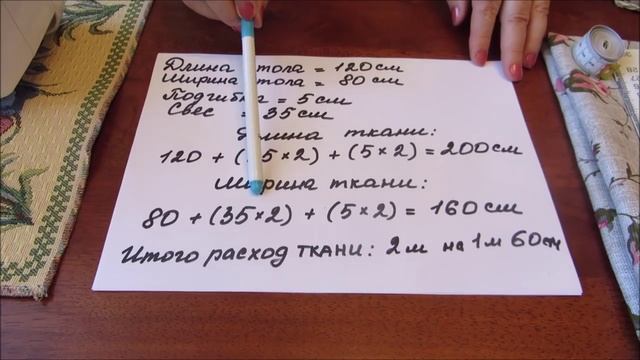 Длина стола = 120 см
Ширина стола = 80 см
Подгибка = 5 см
Свес = 35 см
Длина ткани:
120 + (35×2) + (5×2) = 200 см
Ширина ткани:
80 + (35×2) + (5×2) = 160 см
Итого расход ткани: 2 м на 1 м 60 см